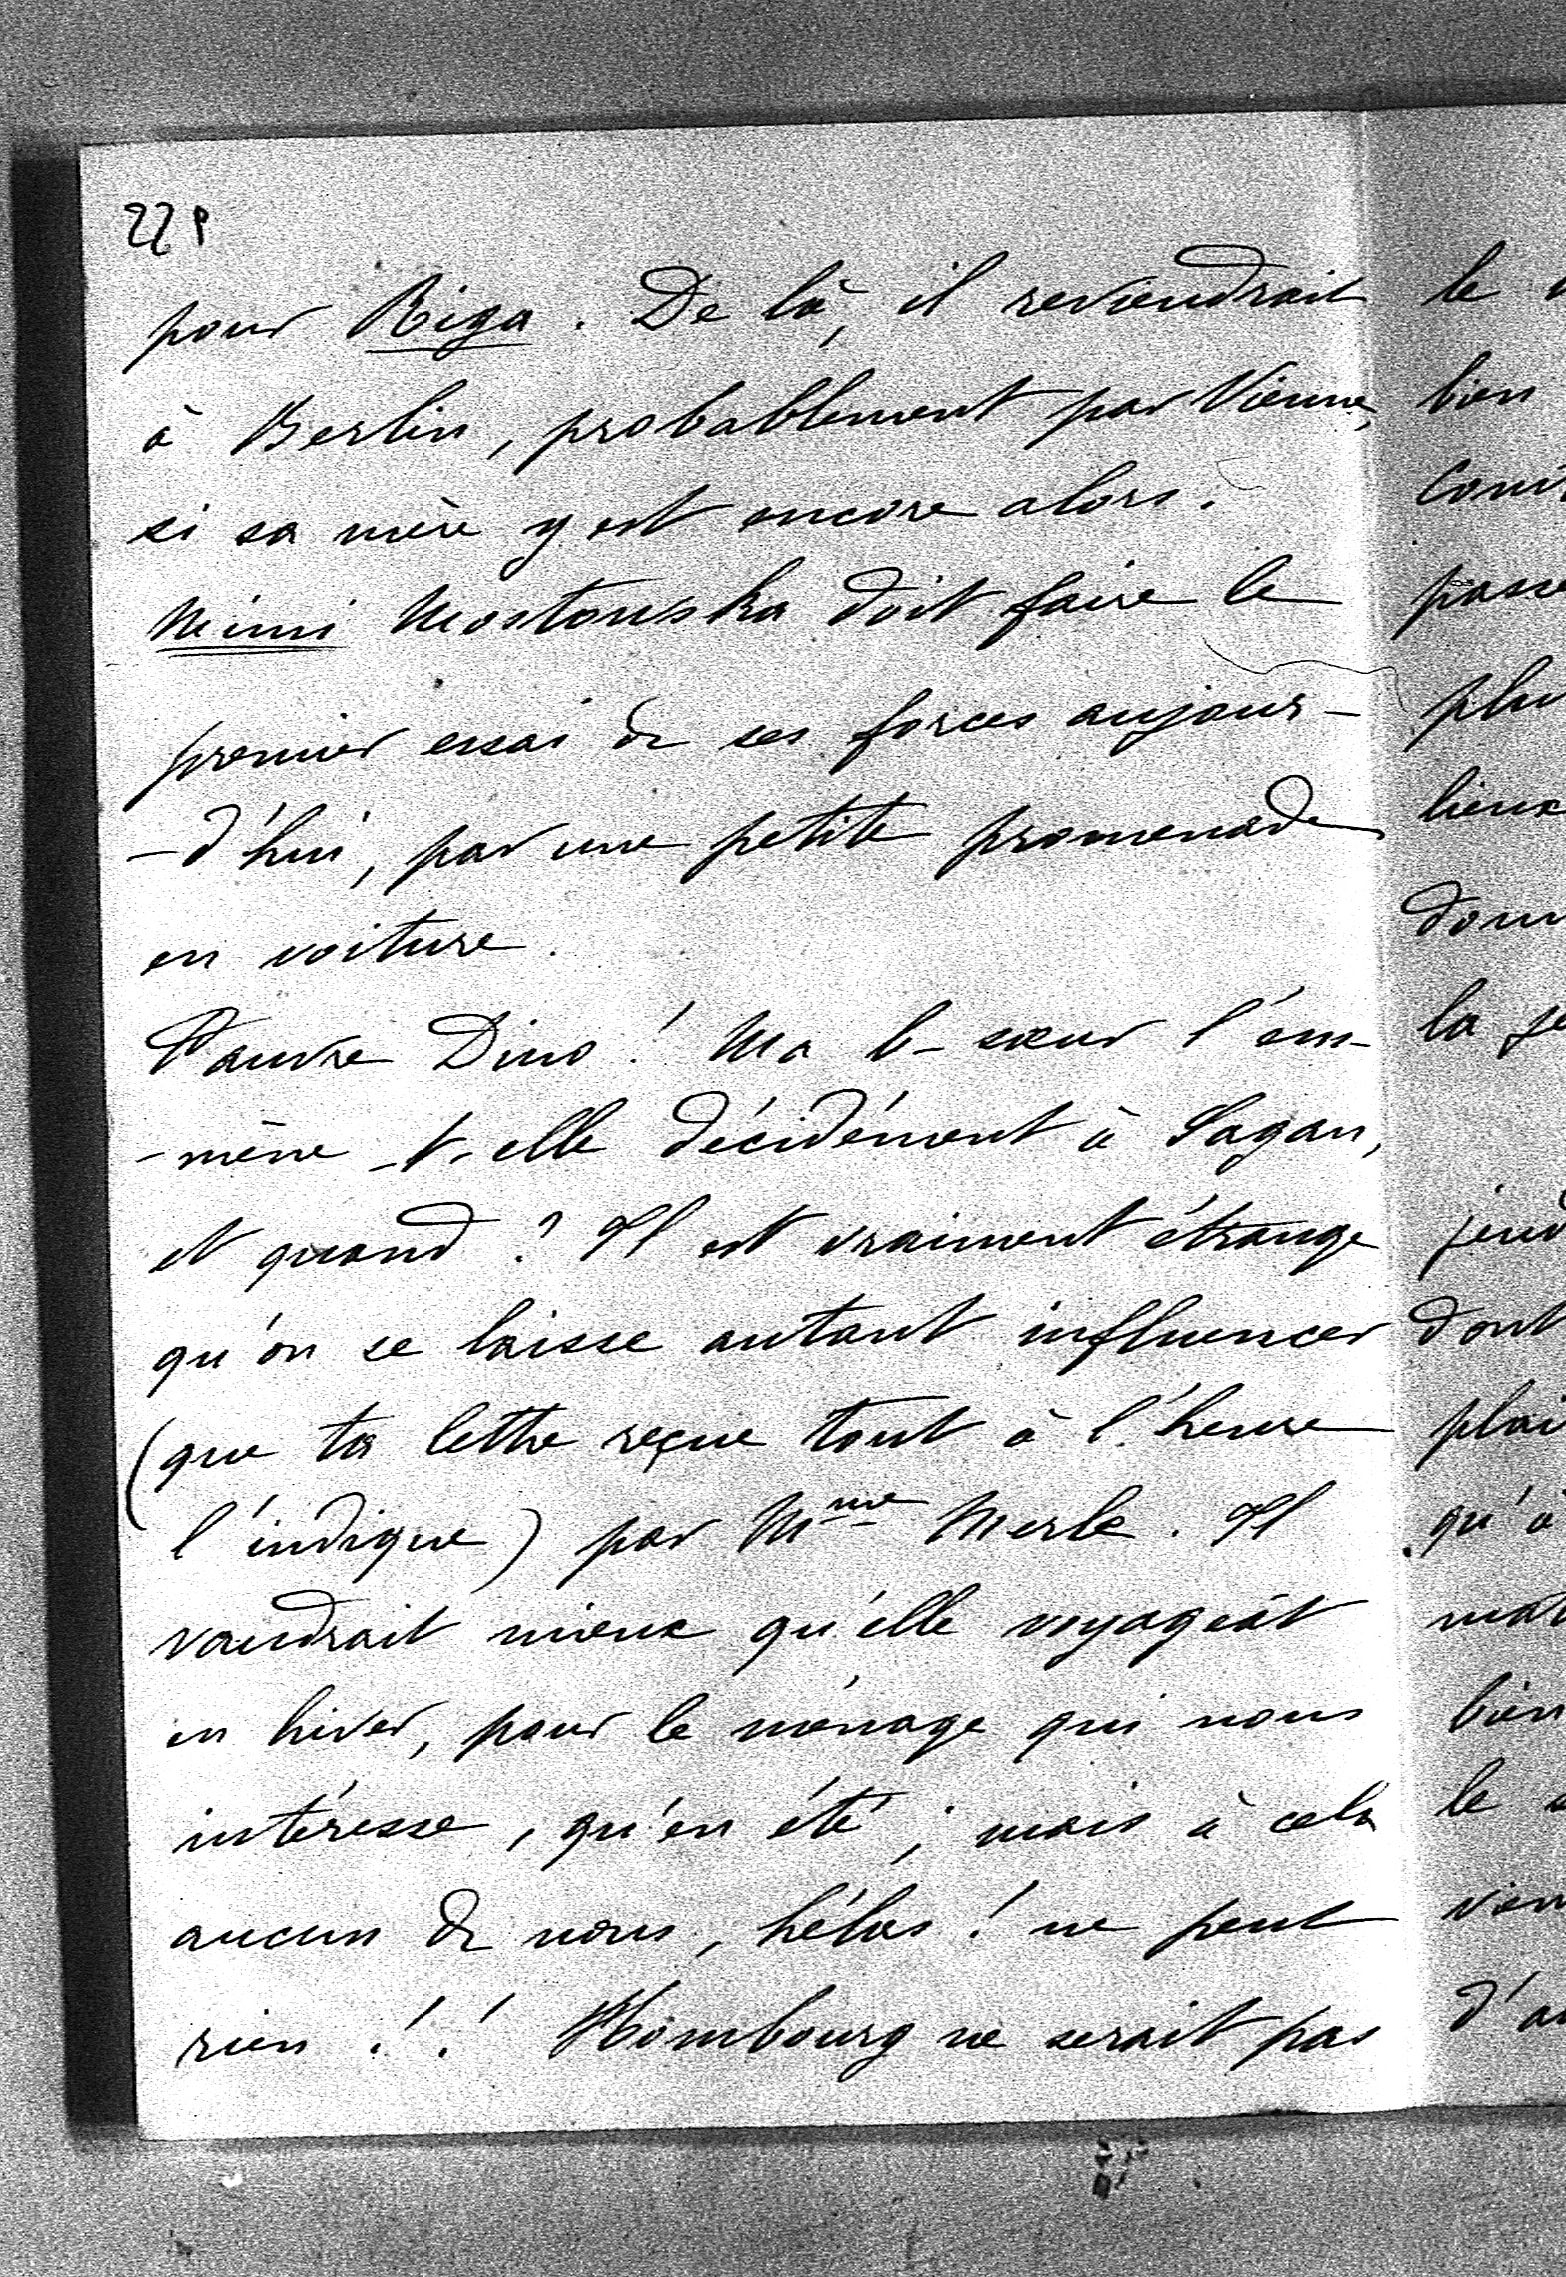 pour Riga. De là, il reviendrait
à Berlin, probablement par Vienne,
si sa mère y est encore alors.
Mimi Mostowska doit faire le
premier essai de ses forces aujour-
-d'hui, par une petite promenade
en voiture.
Pauvre Dino! Ma b-sœur l'em-
-mène-t-elle décidément à Sagan,
et quand? Il est vraiment étrange
qu'on se laisse autant influencer
(que ta lettre reçue tout à l'heure
l'indique) par Mme Merle. Il
vaudrait mieux qu'elle voyageât
en hiver, pour le ménage qui nous
intéresse, qu'en été; mais à cela
aucun de nous, hélas! ne peut
rien!! Hombourg ne serait pas
le
bien
lieux
la
dont
qu'à
bien
le